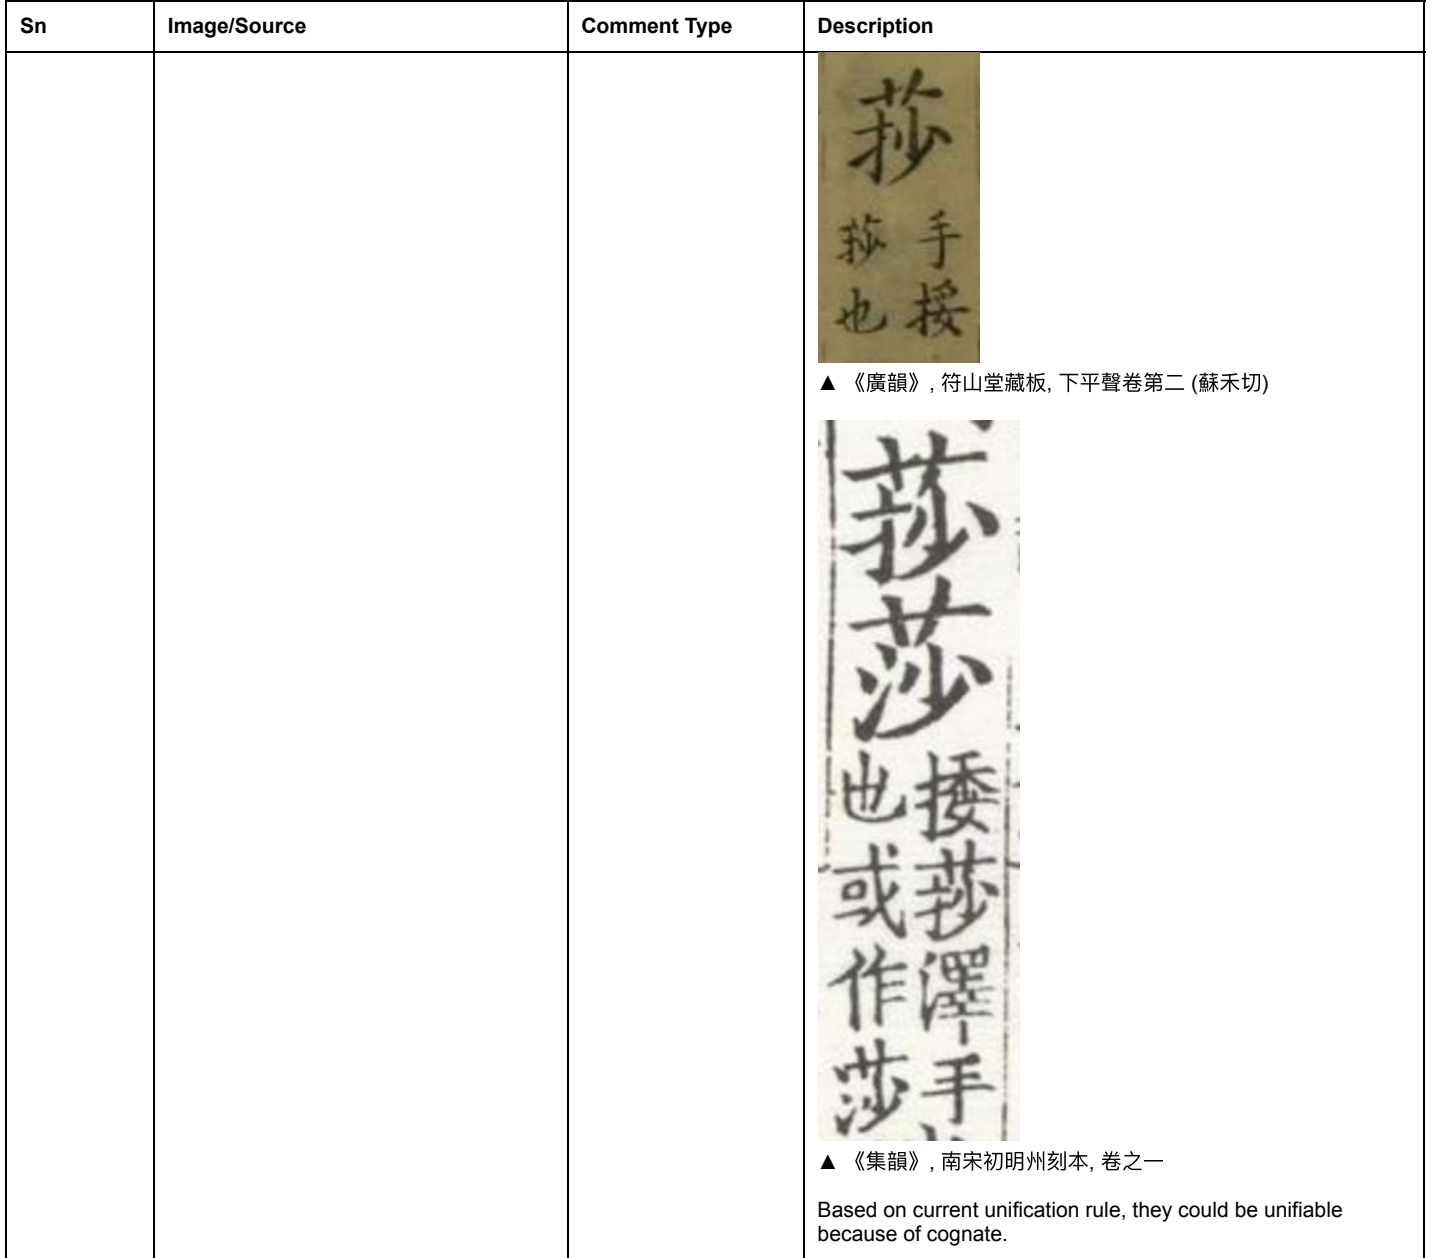 Sn Image/Source Comment Type Description
莏
手挼
莏也
▲ 《廣韻》, 符山堂藏板, 下平聲卷第二 (蘇禾切)
莏莎
捼莏澤手
也或作莎
▲ 《集韻》, 南宋初明州刻本, 卷之一
Based on current unification rule, they could be unifiable
because of cognate.